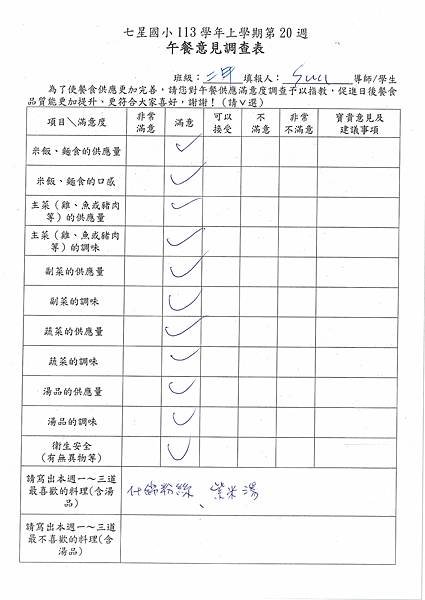 七星國小 113 學年上學期第 20 週
午餐意見調查表
班級：二甲 填報人： 導師/學生
為了使餐食供應更加完善，請您對午餐供應滿意度調查予以指教，促進日後餐食
品質能更加提升、更符合大家喜好，謝謝！（請∨選）
項目＼滿意度 非常滿意 滿意 可以接受 不滿意 非常不滿意 寶貴意見及建議事項
米飯、麵食的供應量 ✓
米飯、麵食的口感 ✓
主菜（雞、魚或豬肉等）的供應量 ✓
主菜（雞、魚或豬肉等）的調味 ✓
副菜的供應量 ✓
副菜的調味 ✓
蔬菜的供應量 ✓
蔬菜的調味 ✓
湯品的供應量 ✓
湯品的調味 ✓
衛生安全（有無異物等） ✓
請寫出本週一～三道最喜歡的料理(含湯品) 什錦粉絲、紫米湯
請寫出本週一～三道最不喜歡的料理(含湯品)